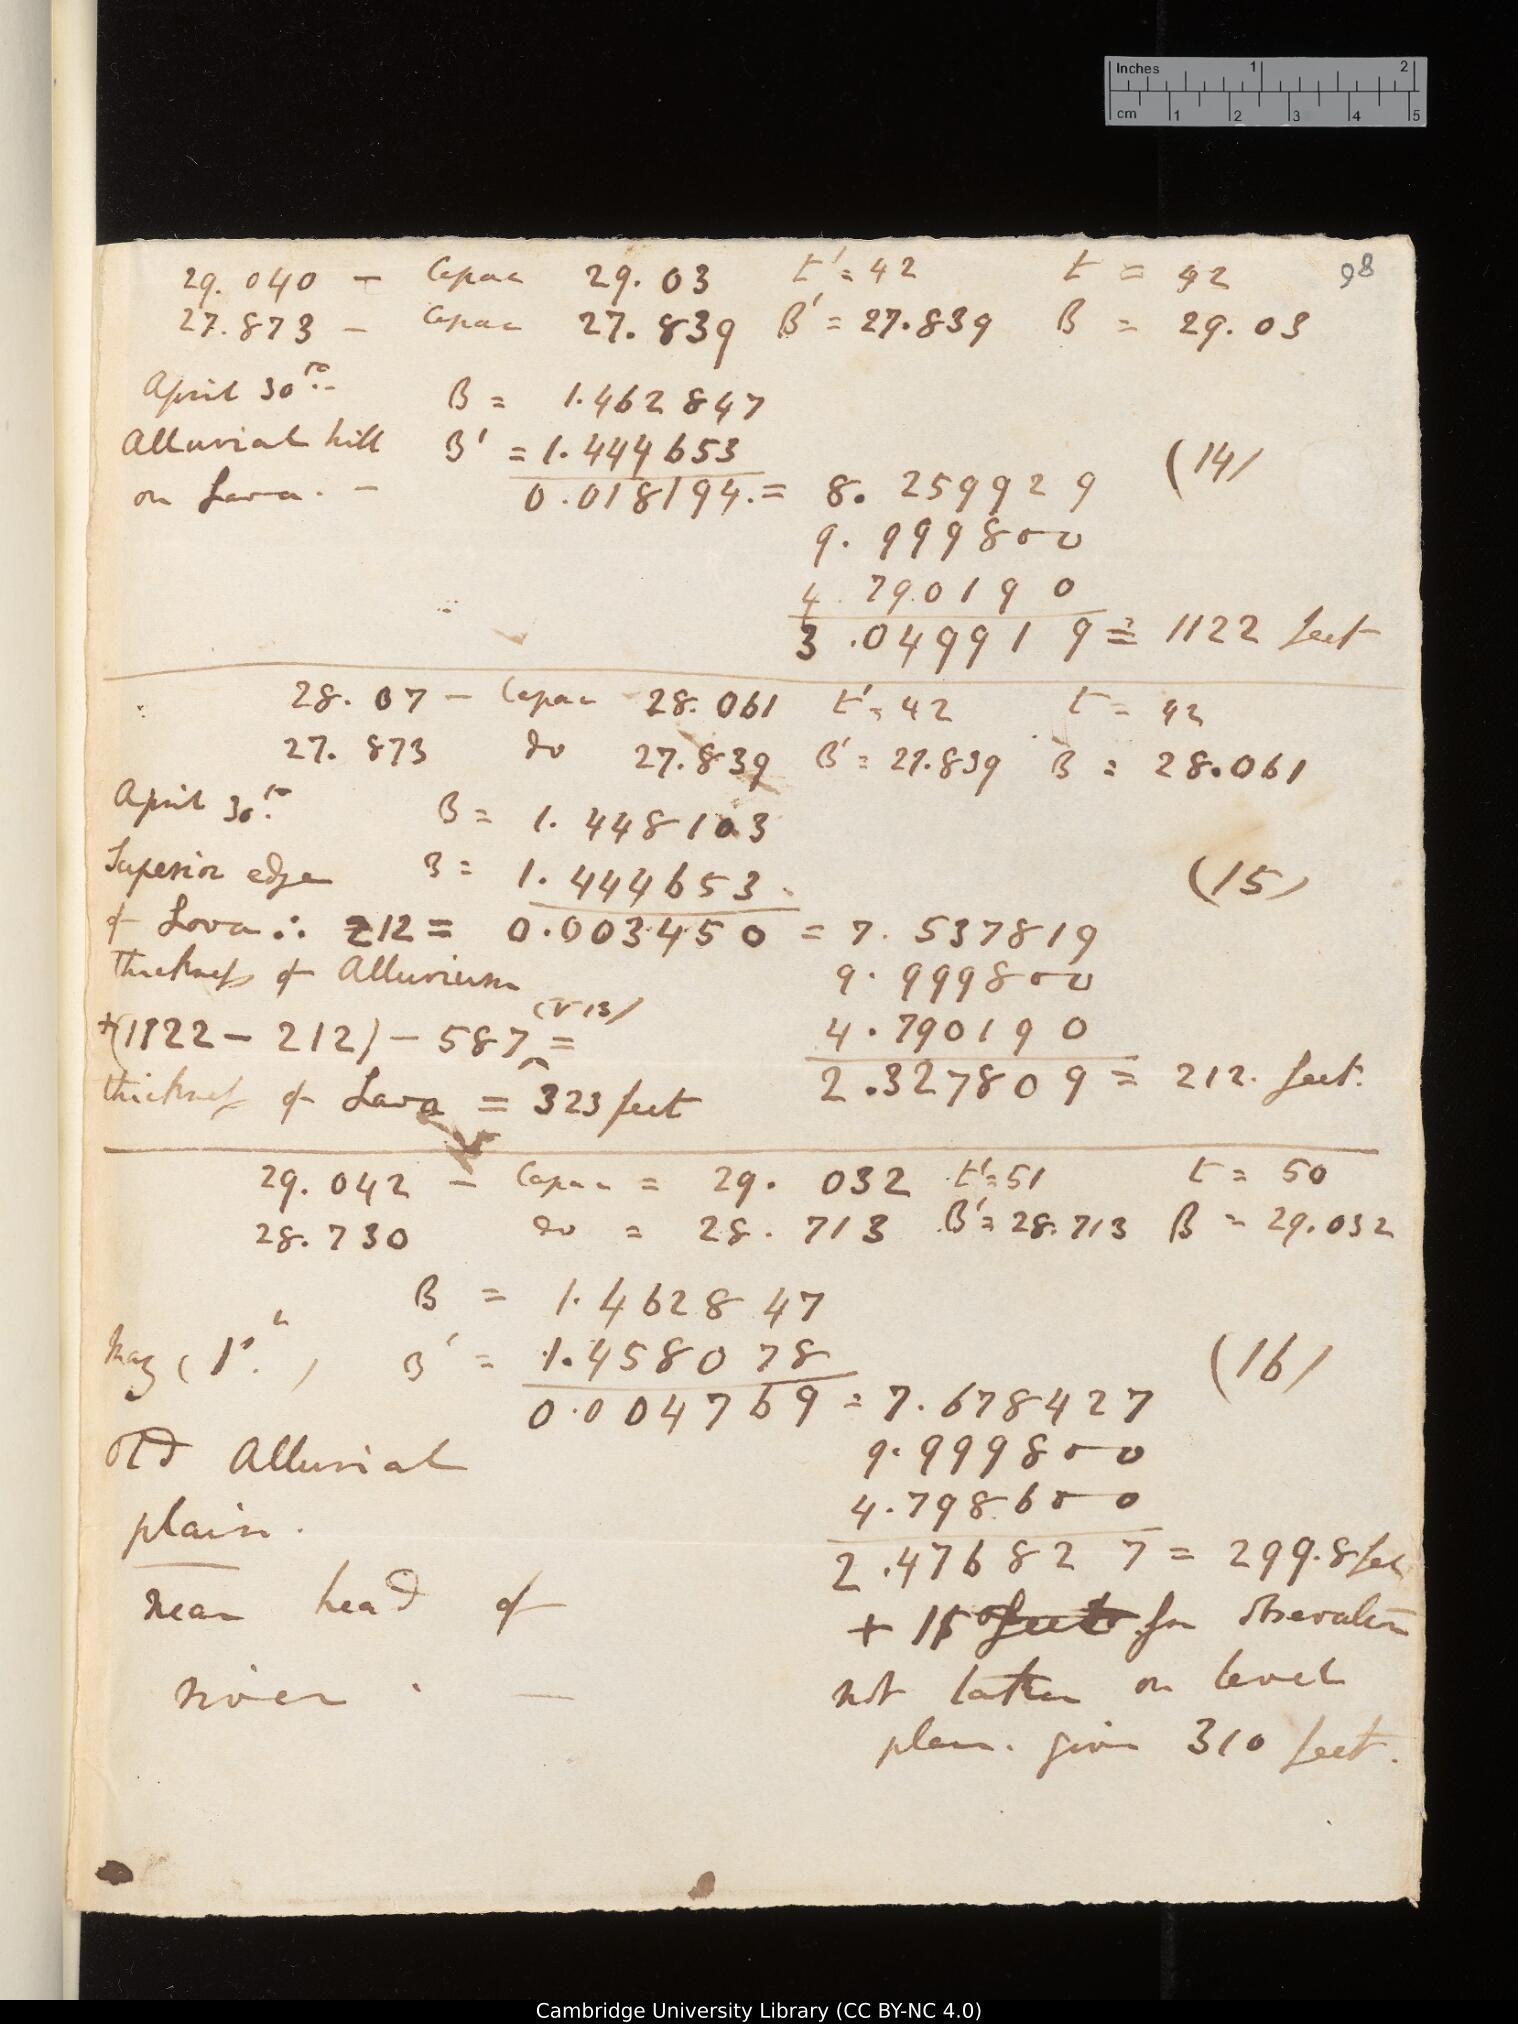 Inches 1 2
cm 1 2 3 4 5
98
29.040 – Capac 29.03 t' = 42 t = 42
27.873 – Capac 27.839 B' = 27.839 B = 29.03
April 30th B = 1.462847
Alluvial hill B' = 1.444653 (14)
on Lava. – 0.018194. = 8.259929
9.999800
4.790190
3.049919 = 1122 feet
28.07 – Capac 28.061 t' = 42 t = 42
27.873 do 27.839 B' = 27.839 B = 28.061
April 30th B = 1.448103
Superior edge B = 1.444653. (15)
of Lava ∴ 212 = 0.003450 = 7.537819
thickness of Alluvium 9.999800
(V 13)
+(1122 – 212) – 587 ‸ = 4.790190
thickness of Lava = 323 feet 2.327809 = 212. feet.
29.042 – Capac = 29.032 t' = 51 t = 50
28.730 do = 28.713 B' = 28.713 B = 29.032
B = 1.462847
May (1st.) B' = 1.458078 (16)
0.004769 = 7.678427
Old Alluvial 9.999800
plain. 4.798600
2.476827 = 299.8 feet
near head of + 1 feet for observation
river. – not taken on level
plain. gives 310 feet.
Cambridge University Library (CC BY-NC 4.0)